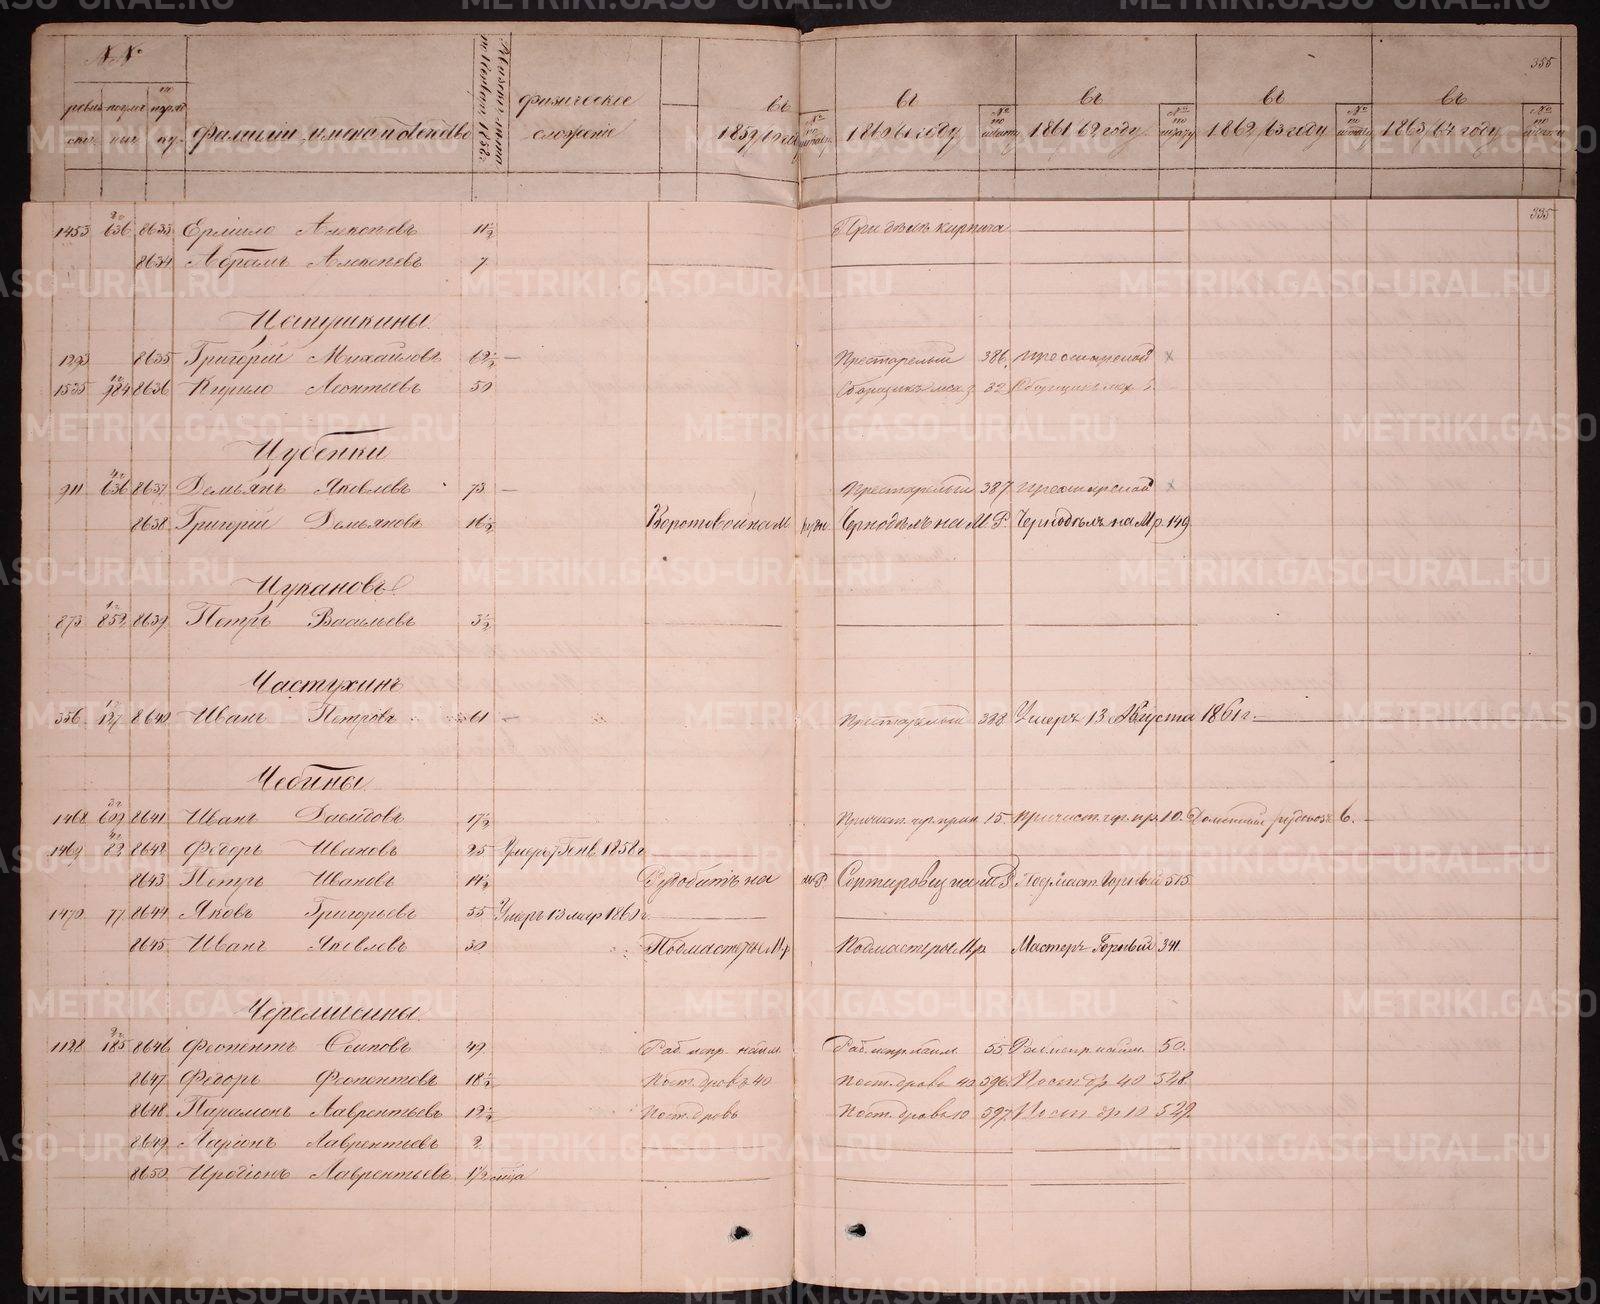 №№
ревизскій
по прям
фамиліи, имена и отечество
физическое сложеніе
въ 1859/60 году
№ по штату
въ 1860/61 году
№ по штату
въ 1861/62 году
№ по штату
въ 1862/63 году
№ по штату
въ 1863/64 году
№ по штату
355
335
1453 636 8633 Ермило Алексѣевъ 11½ При дѣлѣ кирпича
8634 Абрамъ Алексѣевъ 7
Цапушкины
1293 8635 Григорій Михайловъ 62½ — Престарелый 386 престарелой ×
1535 984 8636 Кирило Леонтьевъ 50 Сборщикъ 32
Цубенки
911 636 8637 Демьянъ Яковлевъ 73 — Престарелый 387 престарелой ×
8638 Григорій Демьяновъ 16½ Воротовой на М. рудн. Чернодѣлъ на М. Р. Чернодѣлъ на М р. 149
Цукановъ
873 859 8639 Петръ Васильевъ 3½
Частухинъ
356 127 8640 Иванъ Петровъ 61 — Престарелый 388 Умеръ 13 Августа 1861 г.
Чебины
1468 699 8641 Иванъ Давидовъ 17½ 15. 10. 6.
1469 82 8642 Федоръ Ивановъ 25 Умеръ 7 Генв. 1858 г.
8643 Петръ Ивановъ 14½ на М. Р. Сортировщ. на М. Р. Подмаст. Горный 515
1470 77 8644 Яковъ Григорьевъ 55 Умеръ 13 1860 г.
8645 Иванъ Яковлевъ 30 Подмастеръ М. р. Подмастеръ М. р. Мастеръ Горный 341.
Черемисины
1128 185 8646 Феопентъ Осиповъ 49 Раб. испр. наим. Раб. испр. наим. 55 Раб. испр. наим. 50.
8647 Федоръ Феопентовъ 18½ Пост. дровъ 40 Пост. дровъ 40 596 Пост др 40 528
8648 Парамонъ Лаврентьевъ 12½ Пост. дровъ Пост. дровъ 10 597 Пост др 10 529
8649 Ларіонъ Лаврентьевъ 2
8650 Иродіонъ Лаврентьевъ 1½
METRIKI.GASO-URAL.RU